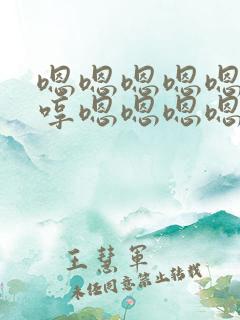 嗯嗯嗯嗯嗯
哼嗯嗯嗯嗯
王慧军
未经同意禁止转载